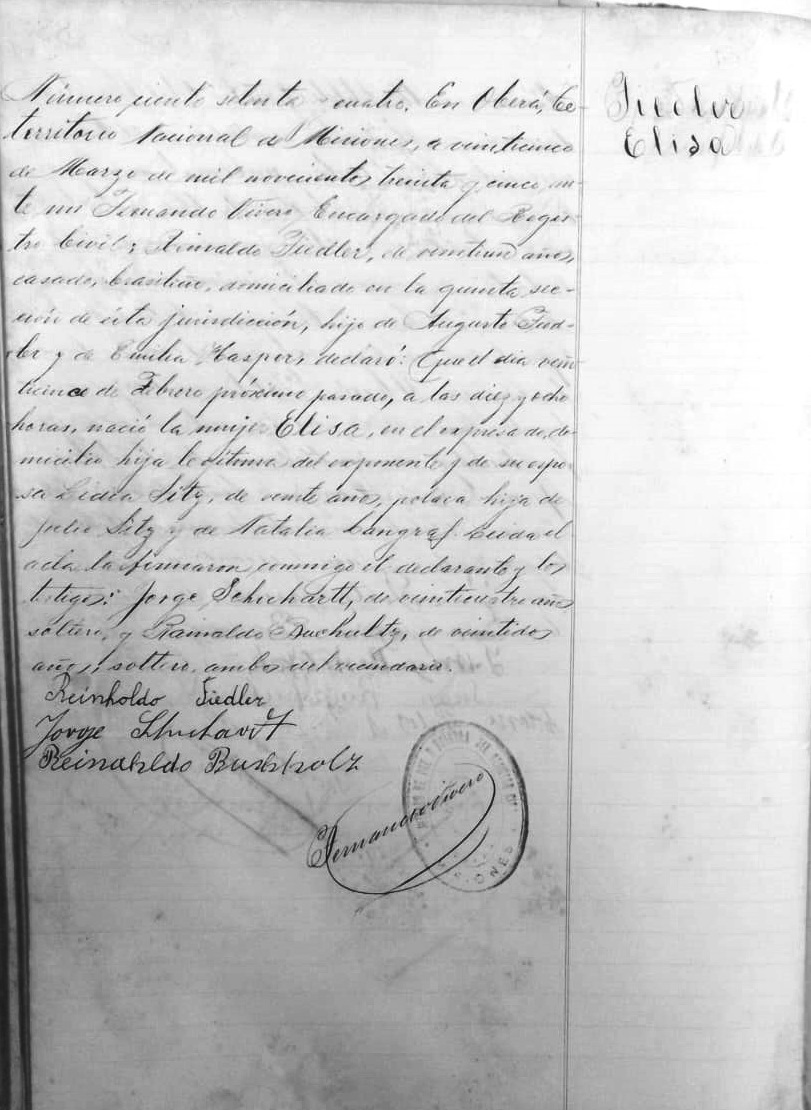 Número ciento setenta cuatro. En Oberá, Te-
territorio Nacional de Misiones, a veinticinco
de Marzo de mil novecientos treinta y cinco, an-
te mi Fernando Vivero Encargado del Regis-
tro Civil; Reinaldo Fiedler, de veintiun años,
casado, brasileño, domiciliado en la quinta sec-
ción de ésta jurisdicción, hijo de Augusto Fied-
ler y de Emilia Kasper, declaró: Que el dia vein-
ticinco de Febrero próximo pasado, a las diez y ocho
horas, nació la mujer Elisa, en el expresado do-
micilio hija legítima del exponente y de su espo-
sa Lidia Sitz, de veinte años, polaca hija de
Julio Sitz y de Natalia Langraf. Leida el
acta la firmaron conmigo el declarante y los
testigos: Jorge Schuchartt, de veinticuatro años
soltero, y Rainaldo Buchultz, de veintidos
años, soltero, ambos del vecindario.
Reinholdo Fiedler
Jorge Schuchartt
Reinahldo Buchholz
Fernando Vivero
MISIONES
Fiedler
Elisa